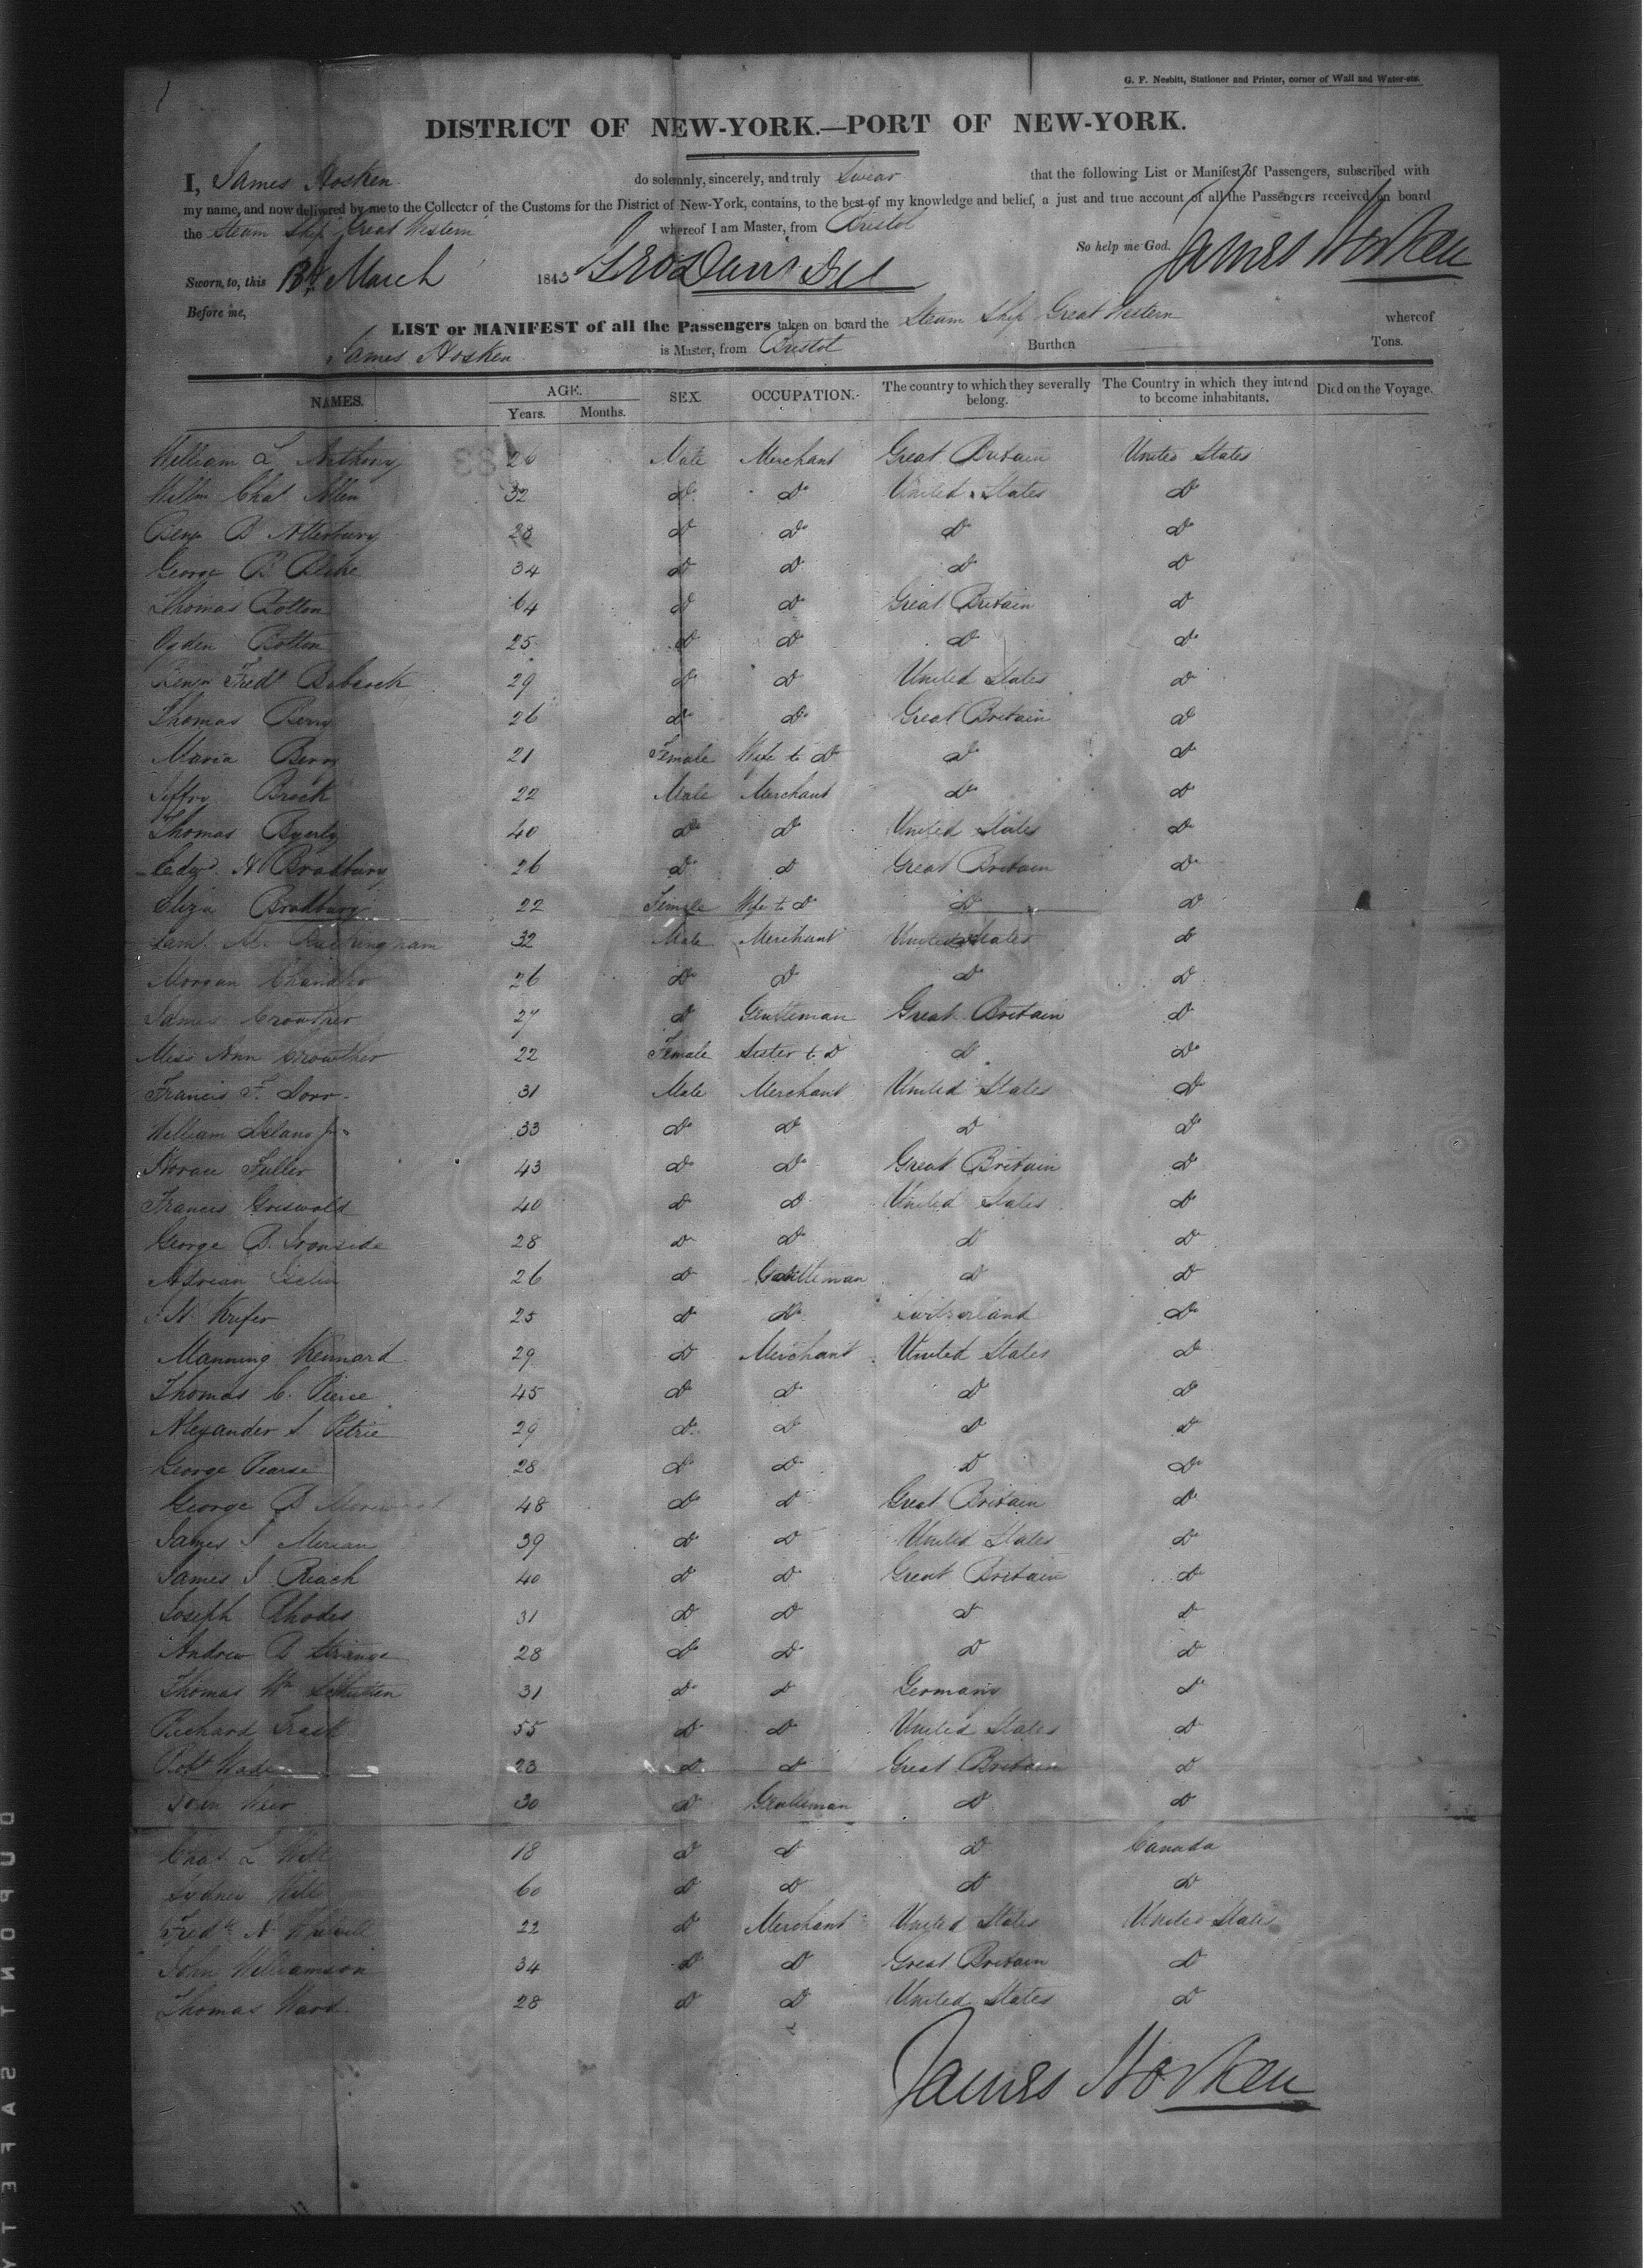 G. F. Nesbitt, Stationer and Printer, corner of Wall and Water-sts.
DISTRICT OF NEW-YORK.—PORT OF NEW-YORK.
I, James Hosken do solemnly, sincerely, and truly Swear that the following List or Manifest of Passengers, subscribed with
my name, and now delivered by me to the Collector of the Customs for the District of New-York, contains, to the best of my knowledge and belief, a just and true account of all the Passengers received on board
the Steam Ship Great Western whereof I am Master, from Bristol
So help me God. James Hosken
Sworn to, this 13th March 1843
Before me,
LIST or MANIFEST of all the Passengers taken on board the Steam Ship Great Western whereof
James Hosken is Master, from Bristol Burthen Tons.
NAMES. AGE. Years. Months. SEX. OCCUPATION. The country to which they severally belong. The Country in which they intend to become inhabitants. Died on the Voyage.
William L Anthony 26 Male Merchant Great Britain United States
Willm Chas Allen 32 Do Do United States Do
Benjn B Atterbury 28 Do Do Do Do
George B 34 Do Do Do Do
Thomas Bolton 64 Do Do Great Britain Do
Ogden Bolton 25 Do Do Do Do
Fredk Babcock 29 Do Do United States Do
Thomas Berry 26 Do Do Great Britain Do
Maria Berry 21 Female Wife to Do Do Do
Jeffry Brock 22 Male Merchant Do Do
Thomas Byerly 40 Do Do United States Do
Edwd A Bradbury 26 Do Do Great Britain Do
Eliza Bradbury 22 Female Wife to Do Do Do
Saml M. Buckingham 32 Male Merchant United States Do
Morgan Chandler 26 Do Do Do Do
James Crowther 27 Do Gentleman Great Britain Do
Miss Ann Crowther 22 Female Sister to Do Do Do
Francis F. Dorr 31 Male Merchant United States Do
William Delano Jr 33 Do Do Do Do
Horace Fuller 43 Do Do Great Britain Do
Francis Griswold 40 Do Do United States Do
George B. Ironside 28 Do Do Do Do
Adrian Iselin 26 Do Gentleman Do Do
Krefer 25 Do Do Switzerland Do
Manning Kennard 29 Do Merchant United States Do
Thomas C. Pierce 45 Do Do Do Do
Alexander S Petrie 29 Do Do Do Do
George Pearse 28 Do Do Do Do
George B Morewood 48 Do Do Great Britain Do
James S Merian 39 Do Do United States Do
James J Riach 40 Do Do Great Britain Do
Joseph Rhodes 31 Do Do Do Do
Andrew B Strange 28 Do Do Do Do
Thomas Wm Schutten 31 Do Do Germany Do
Richard Trask 55 Do Do United States Do
Robt Wade 23 Do Do Great Britain Do
John Weir 30 Do Gentleman Do Do
Chas L Will 18 Do Do Do Canada
Sydney Will 60 Do Do Do Do
Fredk N 22 Do Merchant United States United States
John Williamson 34 Do Do Great Britain Do
Thomas Ward 28 Do Do United States Do
James Hosken
DUPONT SAFETY